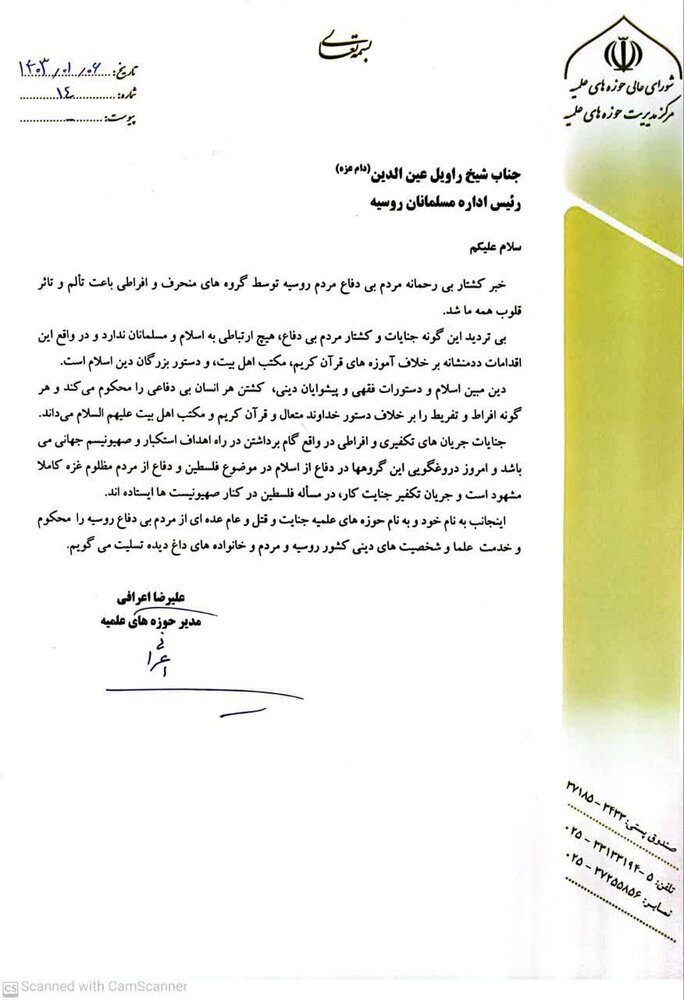 بسمه تعالی
شورای عالی حوزه های علمیه
مرکز مدیریت حوزه های علمیه
تاریخ: ۱۴۰۳/۰۱/۰۶
شماره: ۱۴
پیوست: –
جناب شیخ راویل عین الدین (دام عزه)
رئیس اداره مسلمانان روسیه
سلام علیکم
خبر کشتار بی رحمانه مردم بی دفاع مردم روسیه توسط گروه های منحرف و افراطی باعث تألم و تاثر
قلوب همه ما شد.
بی تردید این گونه جنایات و کشتار مردم بی دفاع، هیچ ارتباطی به اسلام و مسلمانان ندارد و در واقع این
اقدامات ددمنشانه بر خلاف آموزه های قرآن کریم، مکتب اهل بیت، و دستور بزرگان دین اسلام است.
دین مبین اسلام و دستورات فقهی و پیشوایان دینی، کشتن هر انسان بی دفاعی را محکوم می‌کند و هر
گونه افراط و تفریط را بر خلاف دستور خداوند متعال و قرآن کریم و مکتب اهل بیت علیهم السلام می‌داند.
جنایات جریان های تکفیری و افراطی در واقع گام برداشتن در راه اهداف استکبار و صهیونیسم جهانی می
باشد و امروز دروغگویی این گروهها در دفاع از اسلام در موضوع فلسطین و دفاع از مردم مظلوم غزه کاملا
مشهود است و جریان تکفیر جنایت کار، در مسأله فلسطین در کنار صهیونیست ها ایستاده اند.
اینجانب به نام خود و به نام حوزه های علمیه جنایت و قتل و عام عده ای از مردم بی دفاع روسیه را محکوم
و خدمت علما و شخصیت های دینی کشور روسیه و مردم و خانواده های داغ دیده تسلیت می گویم.
علیرضا اعرافی
مدیر حوزه های علمیه
صندوق پستی: ۳۴۳۳ – ۳۷۱۸۵
تلفن: ۵ – ۳۳۱۳۳۱۹۴ – ۰۲۵
نمابر: ۳۷۲۵۵۸۵۶ – ۰۲۵
CS Scanned with CamScanner